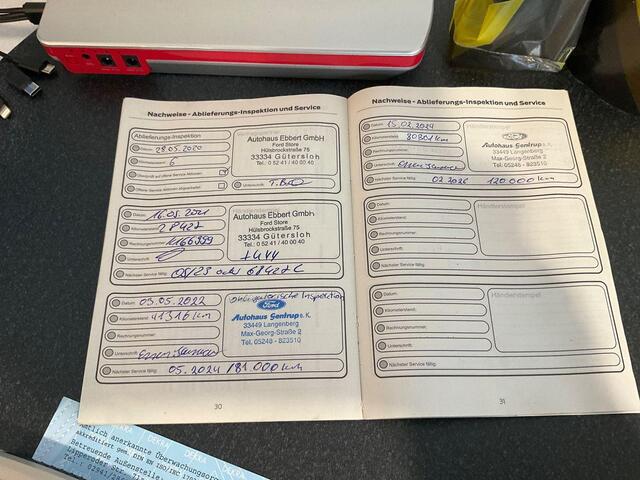 Nachweise - Ablieferungs-Inspektion und Service
Ablieferungs-Inspektion
Datum: 28.05.2020
Kilometerstand: 6
Überprüft auf offene Service-Aktionen:
Offene Service-Aktionen abgearbeitet:
Autohaus Ebbert GmbH
Ford Store
Hülsbrockstraße 75
33334 Gütersloh
Tel.: 0 52 41 / 40 00 40
Unterschrift:
Datum: 16.05.2021
Kilometerstand: 28427
Rechnungsnummer: 1166399
Unterschrift:
Händlerstempel
Autohaus Ebbert GmbH
Ford Store
Hülsbrockstraße 75
33334 Gütersloh
Tel.: 0 52 41 / 40 00 40
Nächster Service fällig: 05/23 oder 68427
Datum: 03.05.2022
Kilometerstand: 41316 km
Rechnungsnummer:
Unterschrift:
obligatorische Inspektion
Ford
Autohaus Gentrup e. K.
33449 Langenberg
Max-Georg-Straße 2
Tel. 05248 - 823510
Nächster Service fällig: 05.2024 / 81.000 km
30
Nachweise - Ablieferungs-Inspektion und Service
Datum: 15.02.2024
Kilometerstand: 80801 km
Rechnungsnummer:
Unterschrift:
Händlerstempel
Ford
Autohaus Gentrup e. K.
33449 Langenberg
Max-Georg-Straße 2
Tel. 05248 - 823510
Nächster Service fällig: 02.2026 120.000 km
Datum:
Kilometerstand:
Rechnungsnummer:
Unterschrift:
Händlerstempel
Nächster Service fällig:
Datum:
Kilometerstand:
Rechnungsnummer:
Unterschrift:
Händlerstempel
Nächster Service fällig:
31
DEKRA
Amtlich anerkannte Überwachungsorg
Akkreditiert gem. DIN EN ISO/IEC 170
Betreuende Außenstelle: